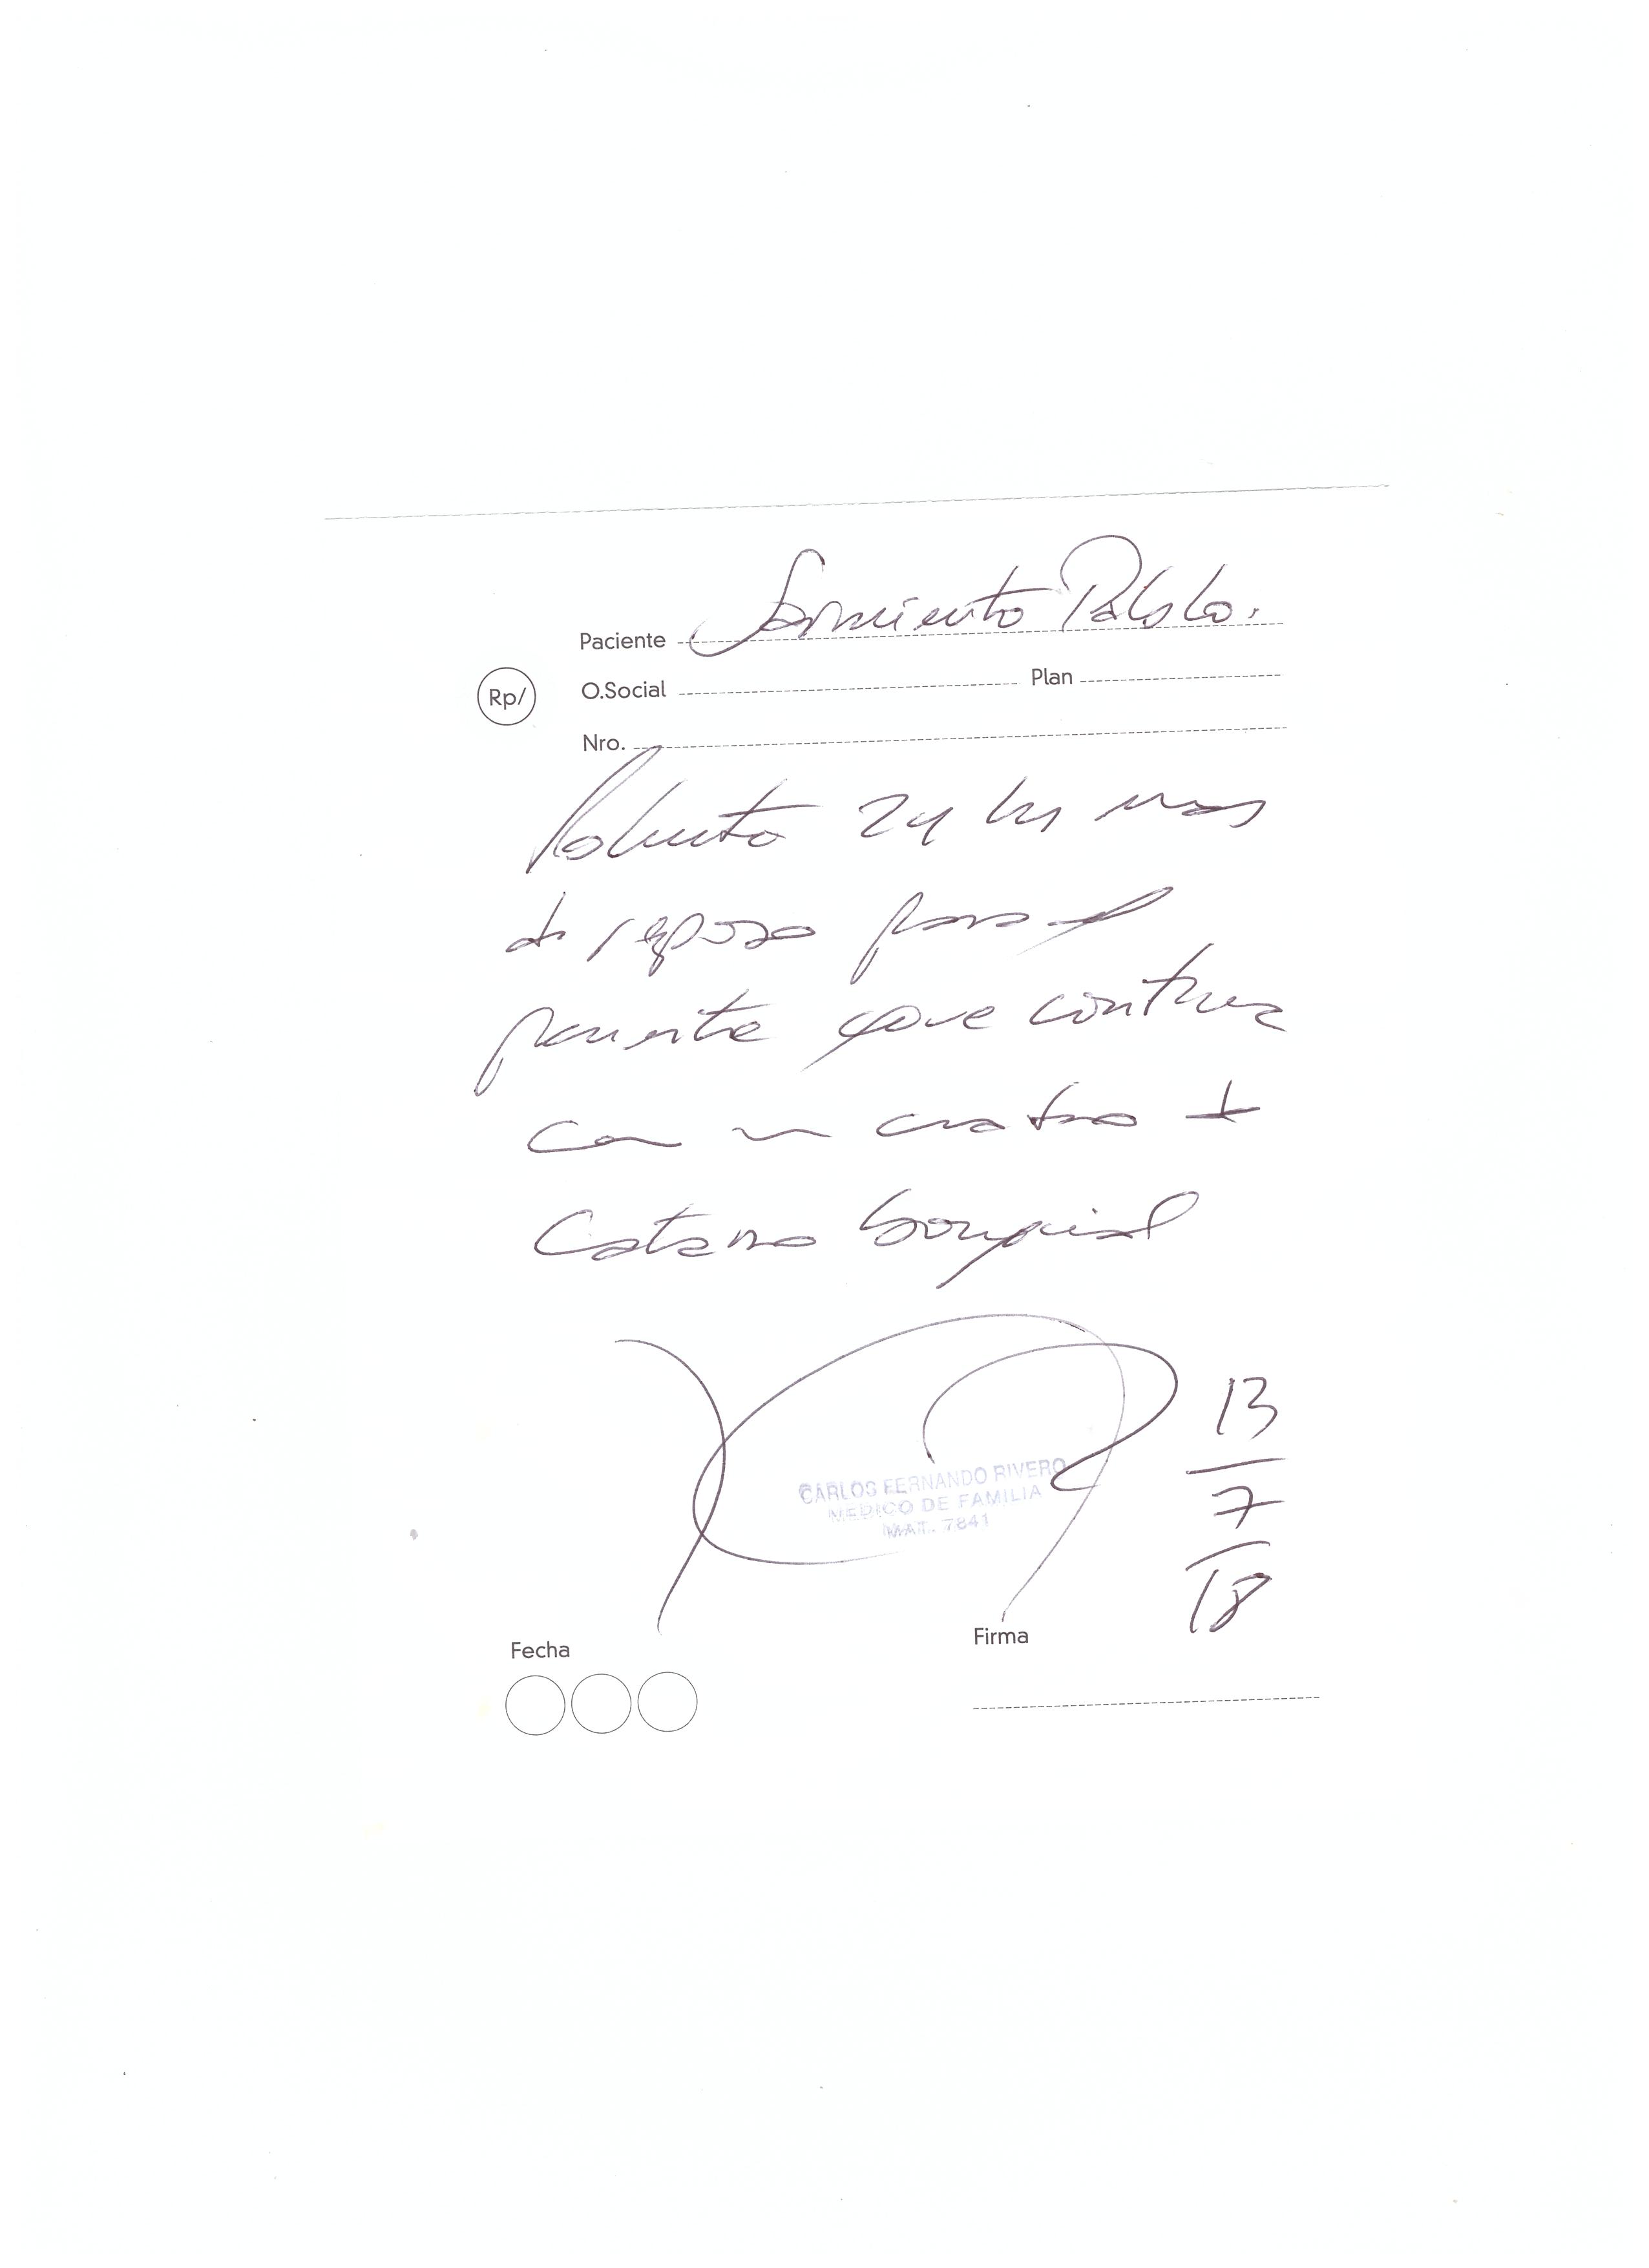 Paciente Sarmiento Pablo.
Rp/
O.Social Plan
Nro.
Solicito 24 hs mas
de reposo para el
paciente que continua
con un cuadro
Catarro bronquial
CARLOS FERNANDO RIVERO
MEDICO DE FAMILIA
MAT. 7841
13
7
18
Fecha Firma